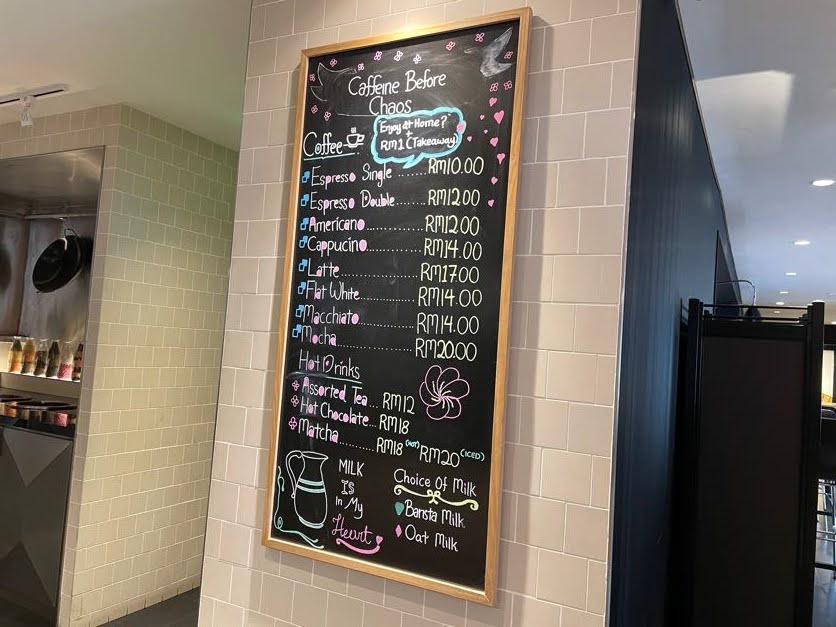 Caffeine Before
Chaos
Enjoy at Home?
+
RM1 (Takeaway)
Coffee
Espresso Single ...... RM10.00
Espresso Double ....... RM12.00
Americano............... RM12.00
Cappucino............... RM14.00
Latte..................... RM17.00
Flat White............... RM14.00
Macchiato............... RM14.00
Mocha.................... RM20.00
Hot Drinks
Assorted Tea... RM12
Hot Chocolate... RM18
Matcha......... RM18 (HOT) RM20 (ICED)
MILK
IS
In My
Heart
Choice Of Milk
Barista Milk
Oat Milk